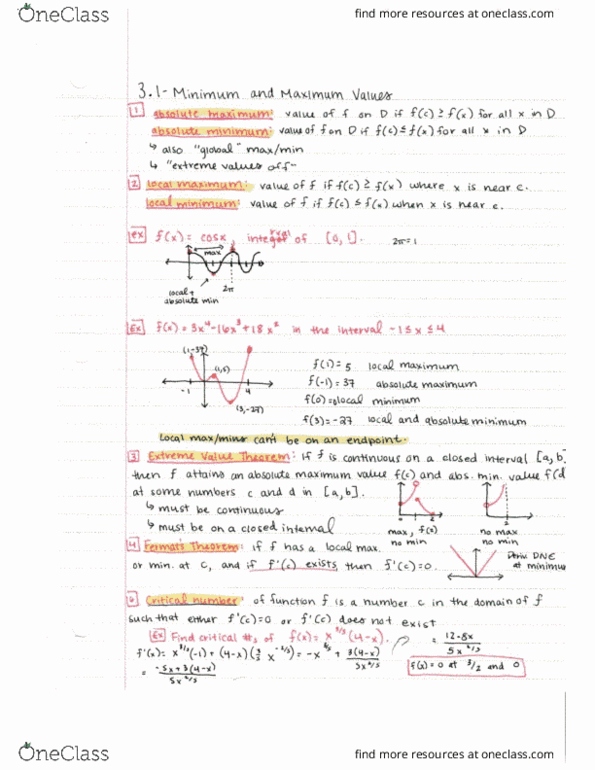 OneClass
find more resources at oneclass.com
3.1- Minimum and Maximum Values
1 absolute maximum: value of f on D if f(c) ≥ f(x) for all x in D
absolute minimum: value of f on D if f(c) ≤ f(x) for all x in D
↳ also "global" max/min
↳ "extreme values of f"
2 local maximum: value of f if f(c) ≥ f(x) where x is near c.
local minimum: value of f if f(c) ≤ f(x) when x is near c.
ex f(x) = cosx, of [0,1]. 2π=1
max
local + absolute min
2π
Ex f(x) = 3x⁴-16x³+18x² in the interval -1≤x≤4
(1,-37)
(1,5)
-1
4
(3,-27)
f(1)=5 local maximum
f(-1)=37 absolute maximum
f(0)=0 local minimum
f(3)=-27 local and absolute minimum
Local max/mins can't be on an endpoint.
3 Extreme Value Theorem: If f is continuous on a closed interval [a,b
then f attains an absolute maximum value f(c) and abs. min. value f(d
at some numbers c and d in [a,b].
↳ must be continuous
↳ must be on a closed interval
max, f(2)
no min
2
no max
no min
4 Fermat's Theorem: if f has a local max.
or min. at c, and if f'(c) exists, then f'(c)=0.
Deriv. DNE
at minimum
Critical number: of function f is a number c in the domain of f
such that either f'(c)=0 or f'(c) does not exist
Ex Find critical #s of f(x)= x^3/5 (4-x).
f'(x)= (-1) + (4-x)( ) = + 3(4-x)
= 12-8x / 5x^2/5
= -5x+3(4-x) / 5x^2/5
f(x)=0 at 3/2 and 0
OneClass
find more resources at oneclass.com